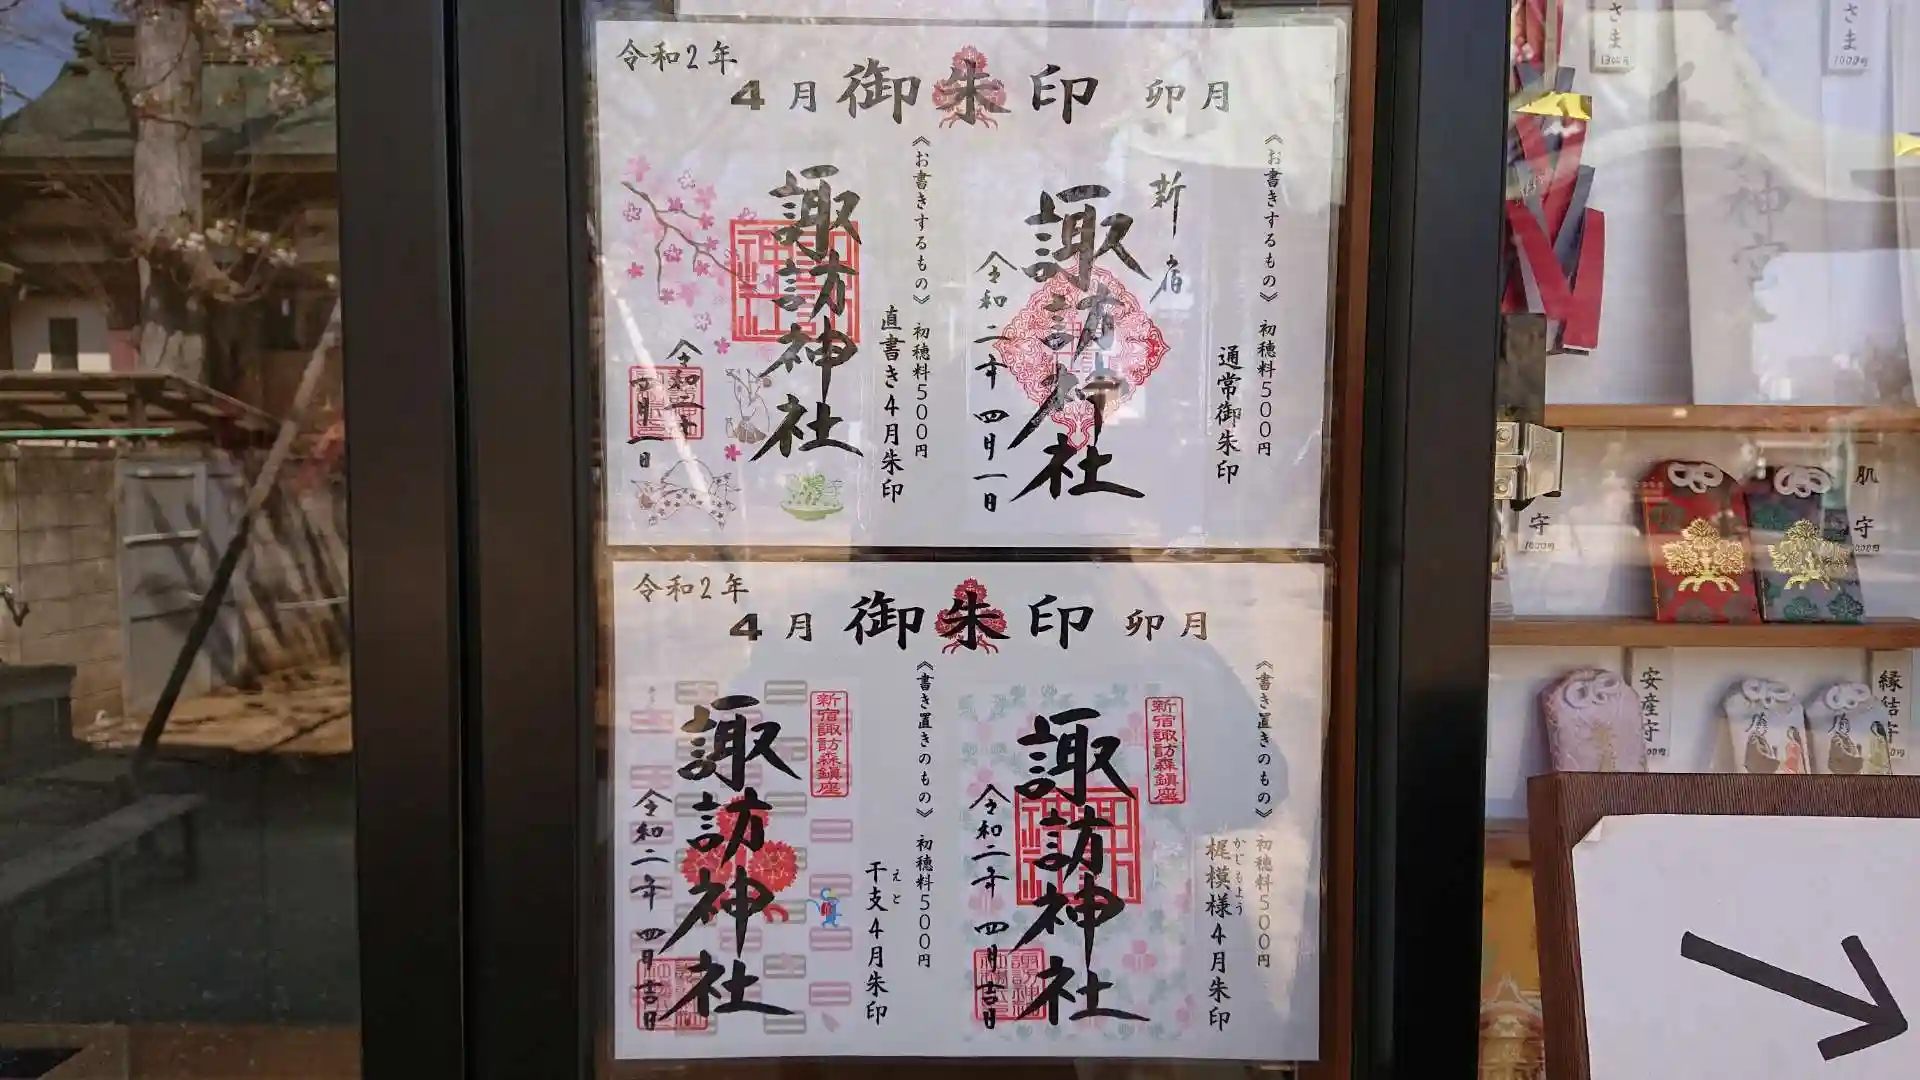 令和2年
4月 御朱印 卯月
《お書きするもの》 初穂料500円
通常御朱印
新宿
諏訪神社
令和二年 四月一日
《お書きするもの》 初穂料500円
直書き4月朱印
諏訪神社
令和二年
四月一日
令和2年
4月 御朱印 卯月
《書き置きのもの》 初穂料500円
梶模様4月朱印
かじもよう
新宿諏訪森鎮座
諏訪神社
令和二年 四月吉日
《書き置きのもの》 初穂料500円
干支4月朱印
えと
新宿諏訪森鎮座
諏訪神社
令和二年 四月吉日
さま
1300円
さま
1000円
神宮
守
1000円
肌守
安産守
縁結守